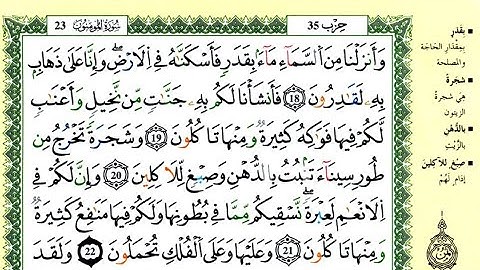 23 سُورَةُ الْمُؤْمِنُونَ
حِزْب 35
وَأَنزَلْنَا مِنَ السَّمَآءِ مَآءَۢ بِقَدَرٖ فَأَسْكَنَّٰهُ فِے اِلَارْضِۖ وَإِنَّا عَلَىٰ ذَهَابِۢ
بِهِۦ لَقَٰدِرُونَ 18 فَأَنشَأْنَا لَكُم بِهِۦ جَنَّٰتٖ مِّن نَّخِيلٖ وَأَعْنَٰبٖ
لَّكُمْ فِيهَا فَوَٰكِهُ كَثِيرَةٞ وَمِنْهَا تَاكُلُونَ 19 وَشَجَرَةٗ تَخْرُجُ مِن
طُورِ سِينَآءَ تَنۢبُتُ بِالدُّهْنِ وَصِبْغٖ لِّلَاكِلِينَ 20 وَإِنَّ لَكُمْ فِے
اِلَانْعَٰمِ لَعِبْرَةٗۖ نَّسْقِيكُم مِّمَّا فِے بُطُونِهَا وَلَكُمْ فِيهَا مَنَٰفِعُ كَثِيرَةٞ
وَمِنْهَا تَاكُلُونَ 21 وَعَلَيْهَا وَعَلَى اَلْفُلْكِ تُحْمَلُونَ 22 وَلَقَدَ
بِقَدَرٍ
بِمِقْدَارِ الحَاجَةِ
والمصلحة
شَجَرةً
هِيَ شَجرةُ
الزيتون
بِالدُّهْنِ
بِالزَّيْتِ
صِبْغٍ لِلآكِلِينَ
إِدَامٍ لَهُمْ